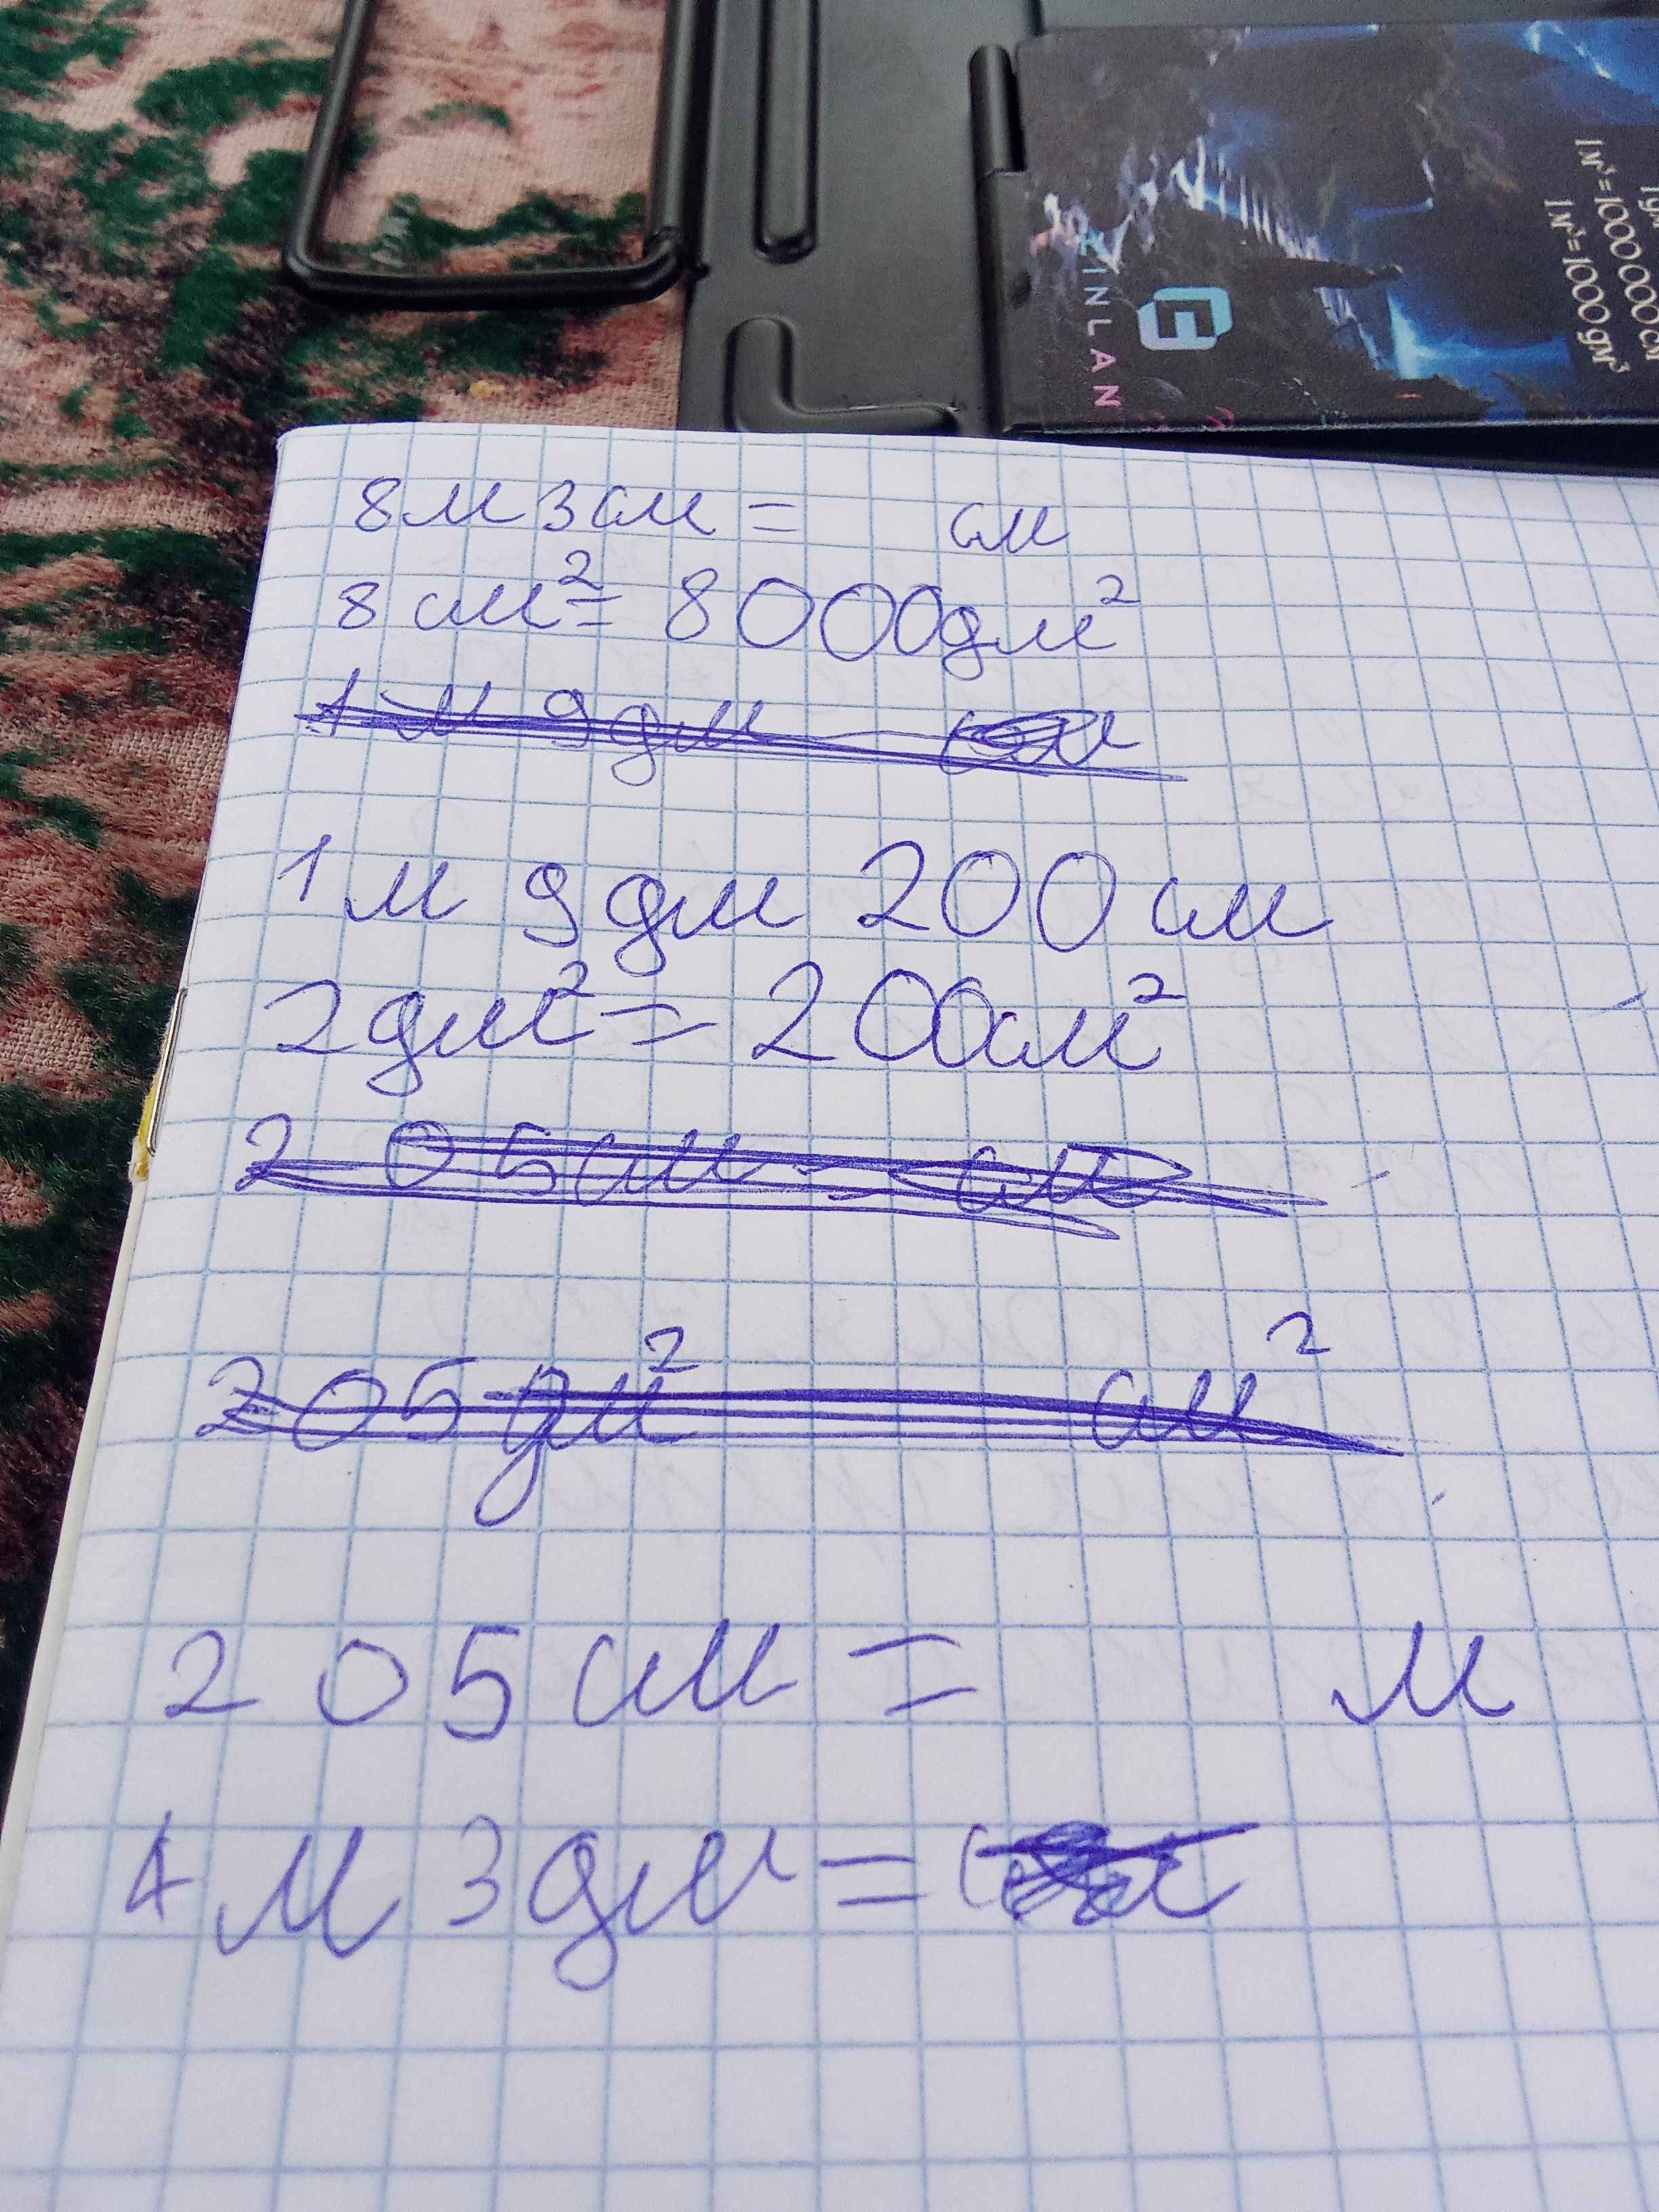 1 м³ = 1000 000 см
1 м³ = 1000 дм³
ZINLAN
8 м 3 см = см
8 см² = 8000 дм²
1 м 9 дм см
1 м 9 дм 200 см
2 дм² = 200 см²
2 05 см = см
205 дм² см²
2 05 см = м
4 м 3 дм =